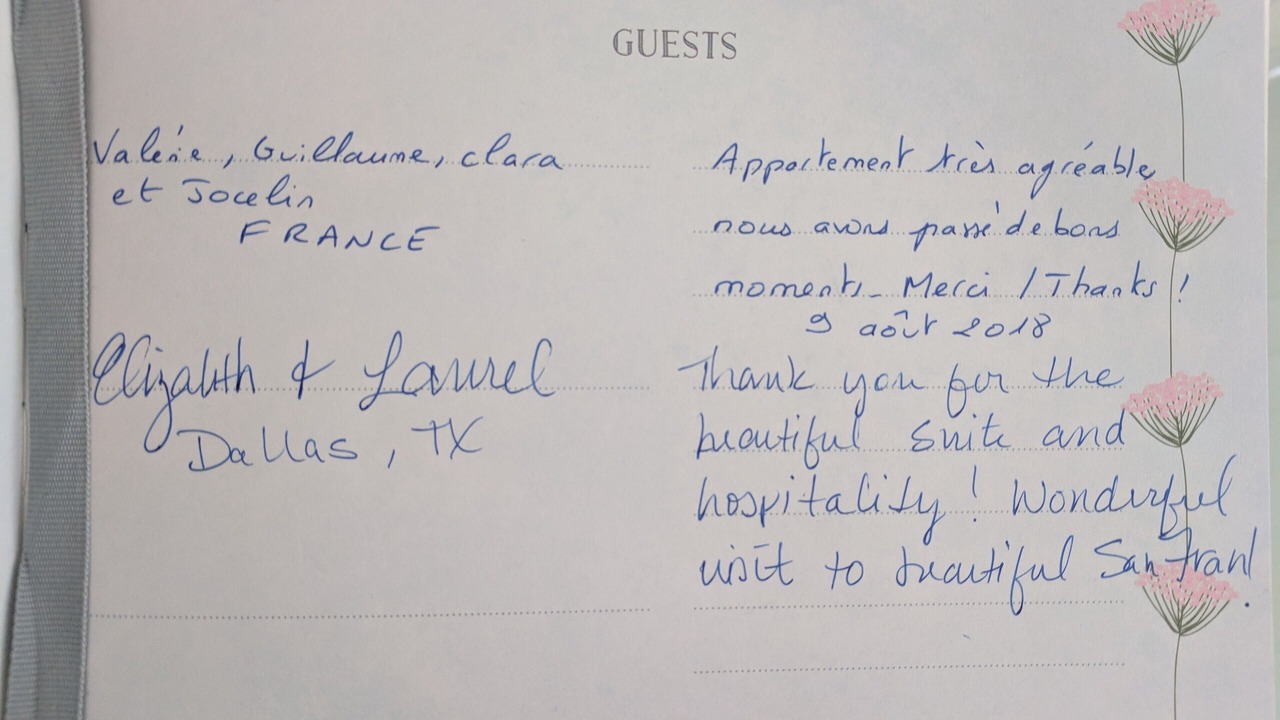 GUESTS
Valérie, Guillaume, Clara
et Jocelin
FRANCE
Appartement très agréable
nous avons passé de bons
moments_ Merci / Thanks !
9 août 2018
Elizabeth & Laurel
Dallas, TX
Thank you for the
beautiful suite and
hospitality! Wonderful
visit to beautiful San Fran!